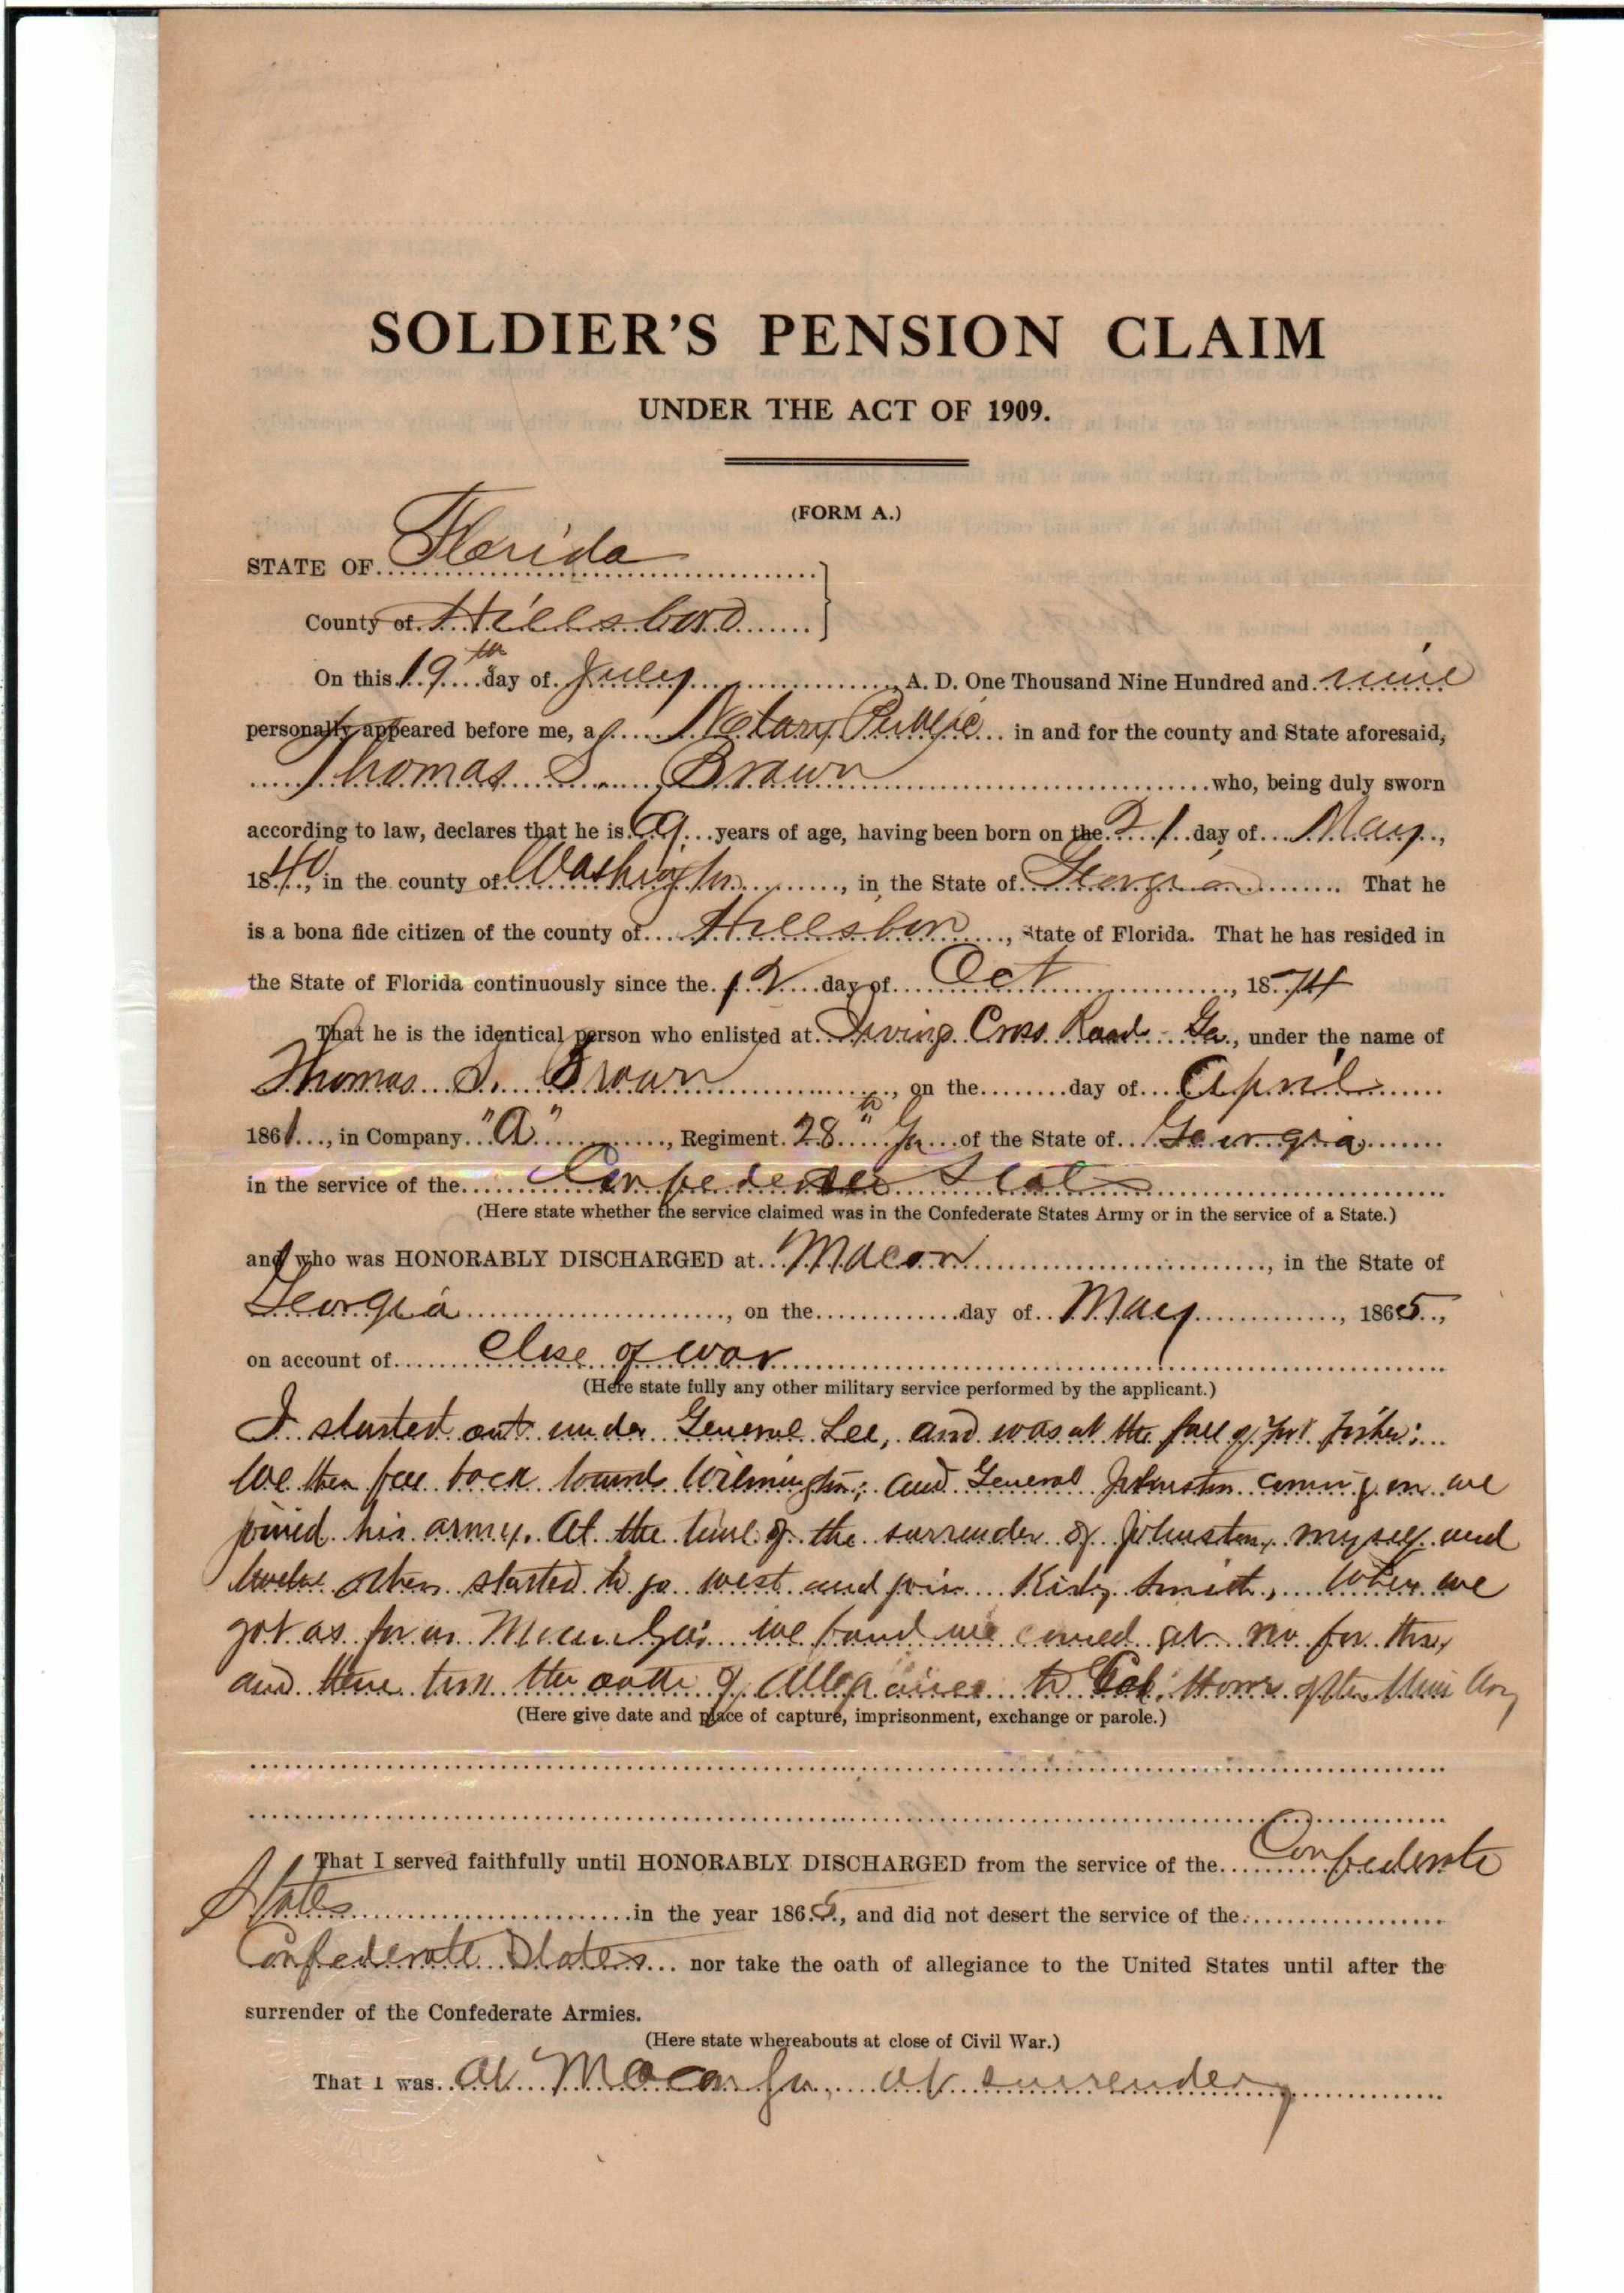 SOLDIER'S PENSION CLAIM
UNDER THE ACT OF 1909.
(FORM A.)
STATE OF Florida
County of Hillsboro
On this 19th day of July A. D. One Thousand Nine Hundred and nine
personally appeared before me, a Notary Public in and for the county and State aforesaid,
Thomas S. Brown who, being duly sworn
according to law, declares that he is 69 years of age, having been born on the 21 day of May,
1840, in the county of Washington, in the State of Georgia That he
is a bona fide citizen of the county of Hillsboro, State of Florida. That he has resided in
the State of Florida continuously since the 12 day of Oct, 1874
That he is the identical person who enlisted at Cross Road Ga., under the name of
Thomas S. Brown, on the day of April
1861, in Company "A", Regiment 28th Ga of the State of Georgia
in the service of the Confederate States
(Here state whether the service claimed was in the Confederate States Army or in the service of a State.)
and who was HONORABLY DISCHARGED at Macon, in the State of
Georgia, on the day of May, 1865,
on account of Close of war
(Here state fully any other military service performed by the applicant.)
I started out under General Lee, and was at the fall of Fort Fisher;
We then fell back towards Wilmington; and General Johnston coming on we
joined his army. At the time of the surrender of Johnston, myself and
twelve others started to go west and join Kirby Smith, When we
got as far as Macon Ga. we found we could get no further,
and there took the oath of Allegiance to of the
(Here give date and place of capture, imprisonment, exchange or parole.)
That I served faithfully until HONORABLY DISCHARGED from the service of the Confederate
States in the year 1865, and did not desert the service of the
Confederate States nor take the oath of allegiance to the United States until after the
surrender of the Confederate Armies.
(Here state whereabouts at close of Civil War.)
That I was at Macon Ga, at surrender